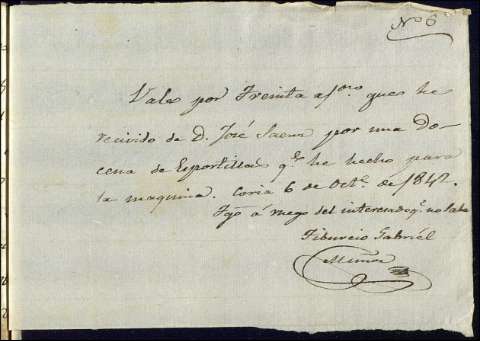 Nº 6
Vale por Treinta a/s.os que he
recivido de D. José Saenz por una Do-
cena de Esportillas q.e he hecho para
la maquina. Coria 6 de Oct.e de 1842.
Fgo á ruego del interesado q.e no sabe
Tiburcio Gabriél
Muñoz